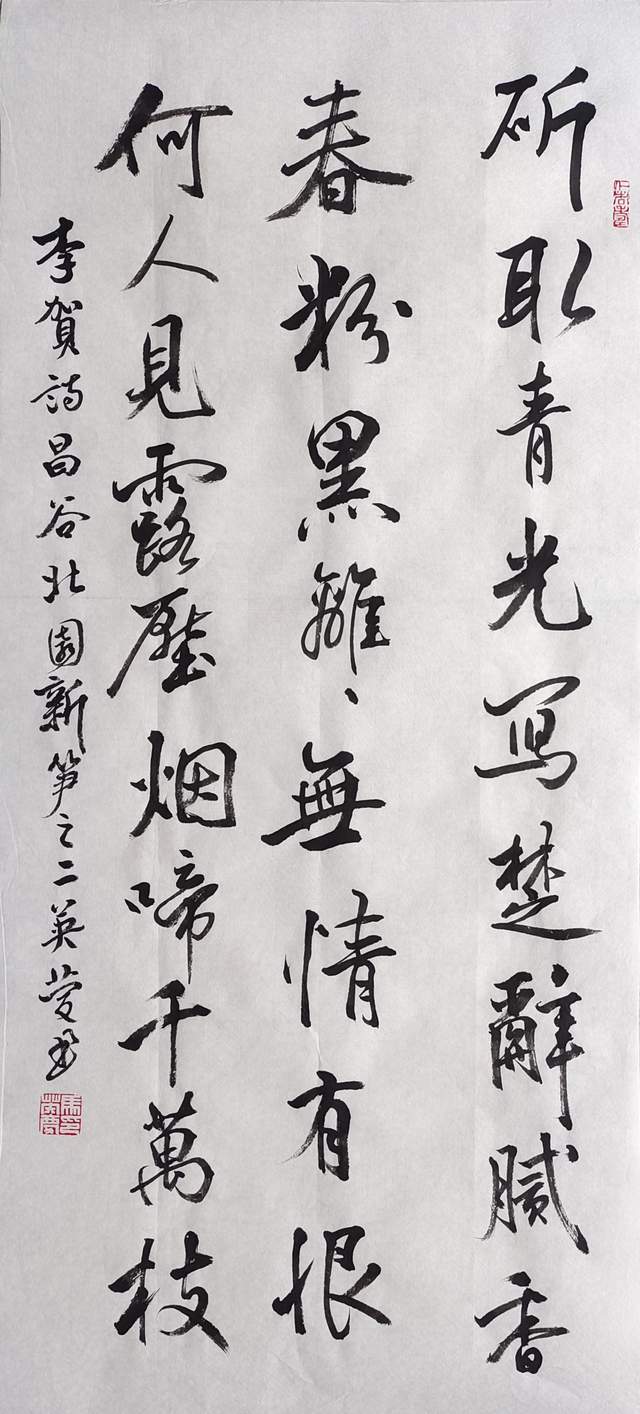 斫取青光写楚辭腻香
春粉黑離、無情有恨
何人見露壓烟啼千萬枝
李賀詩昌谷北園新笋之二英